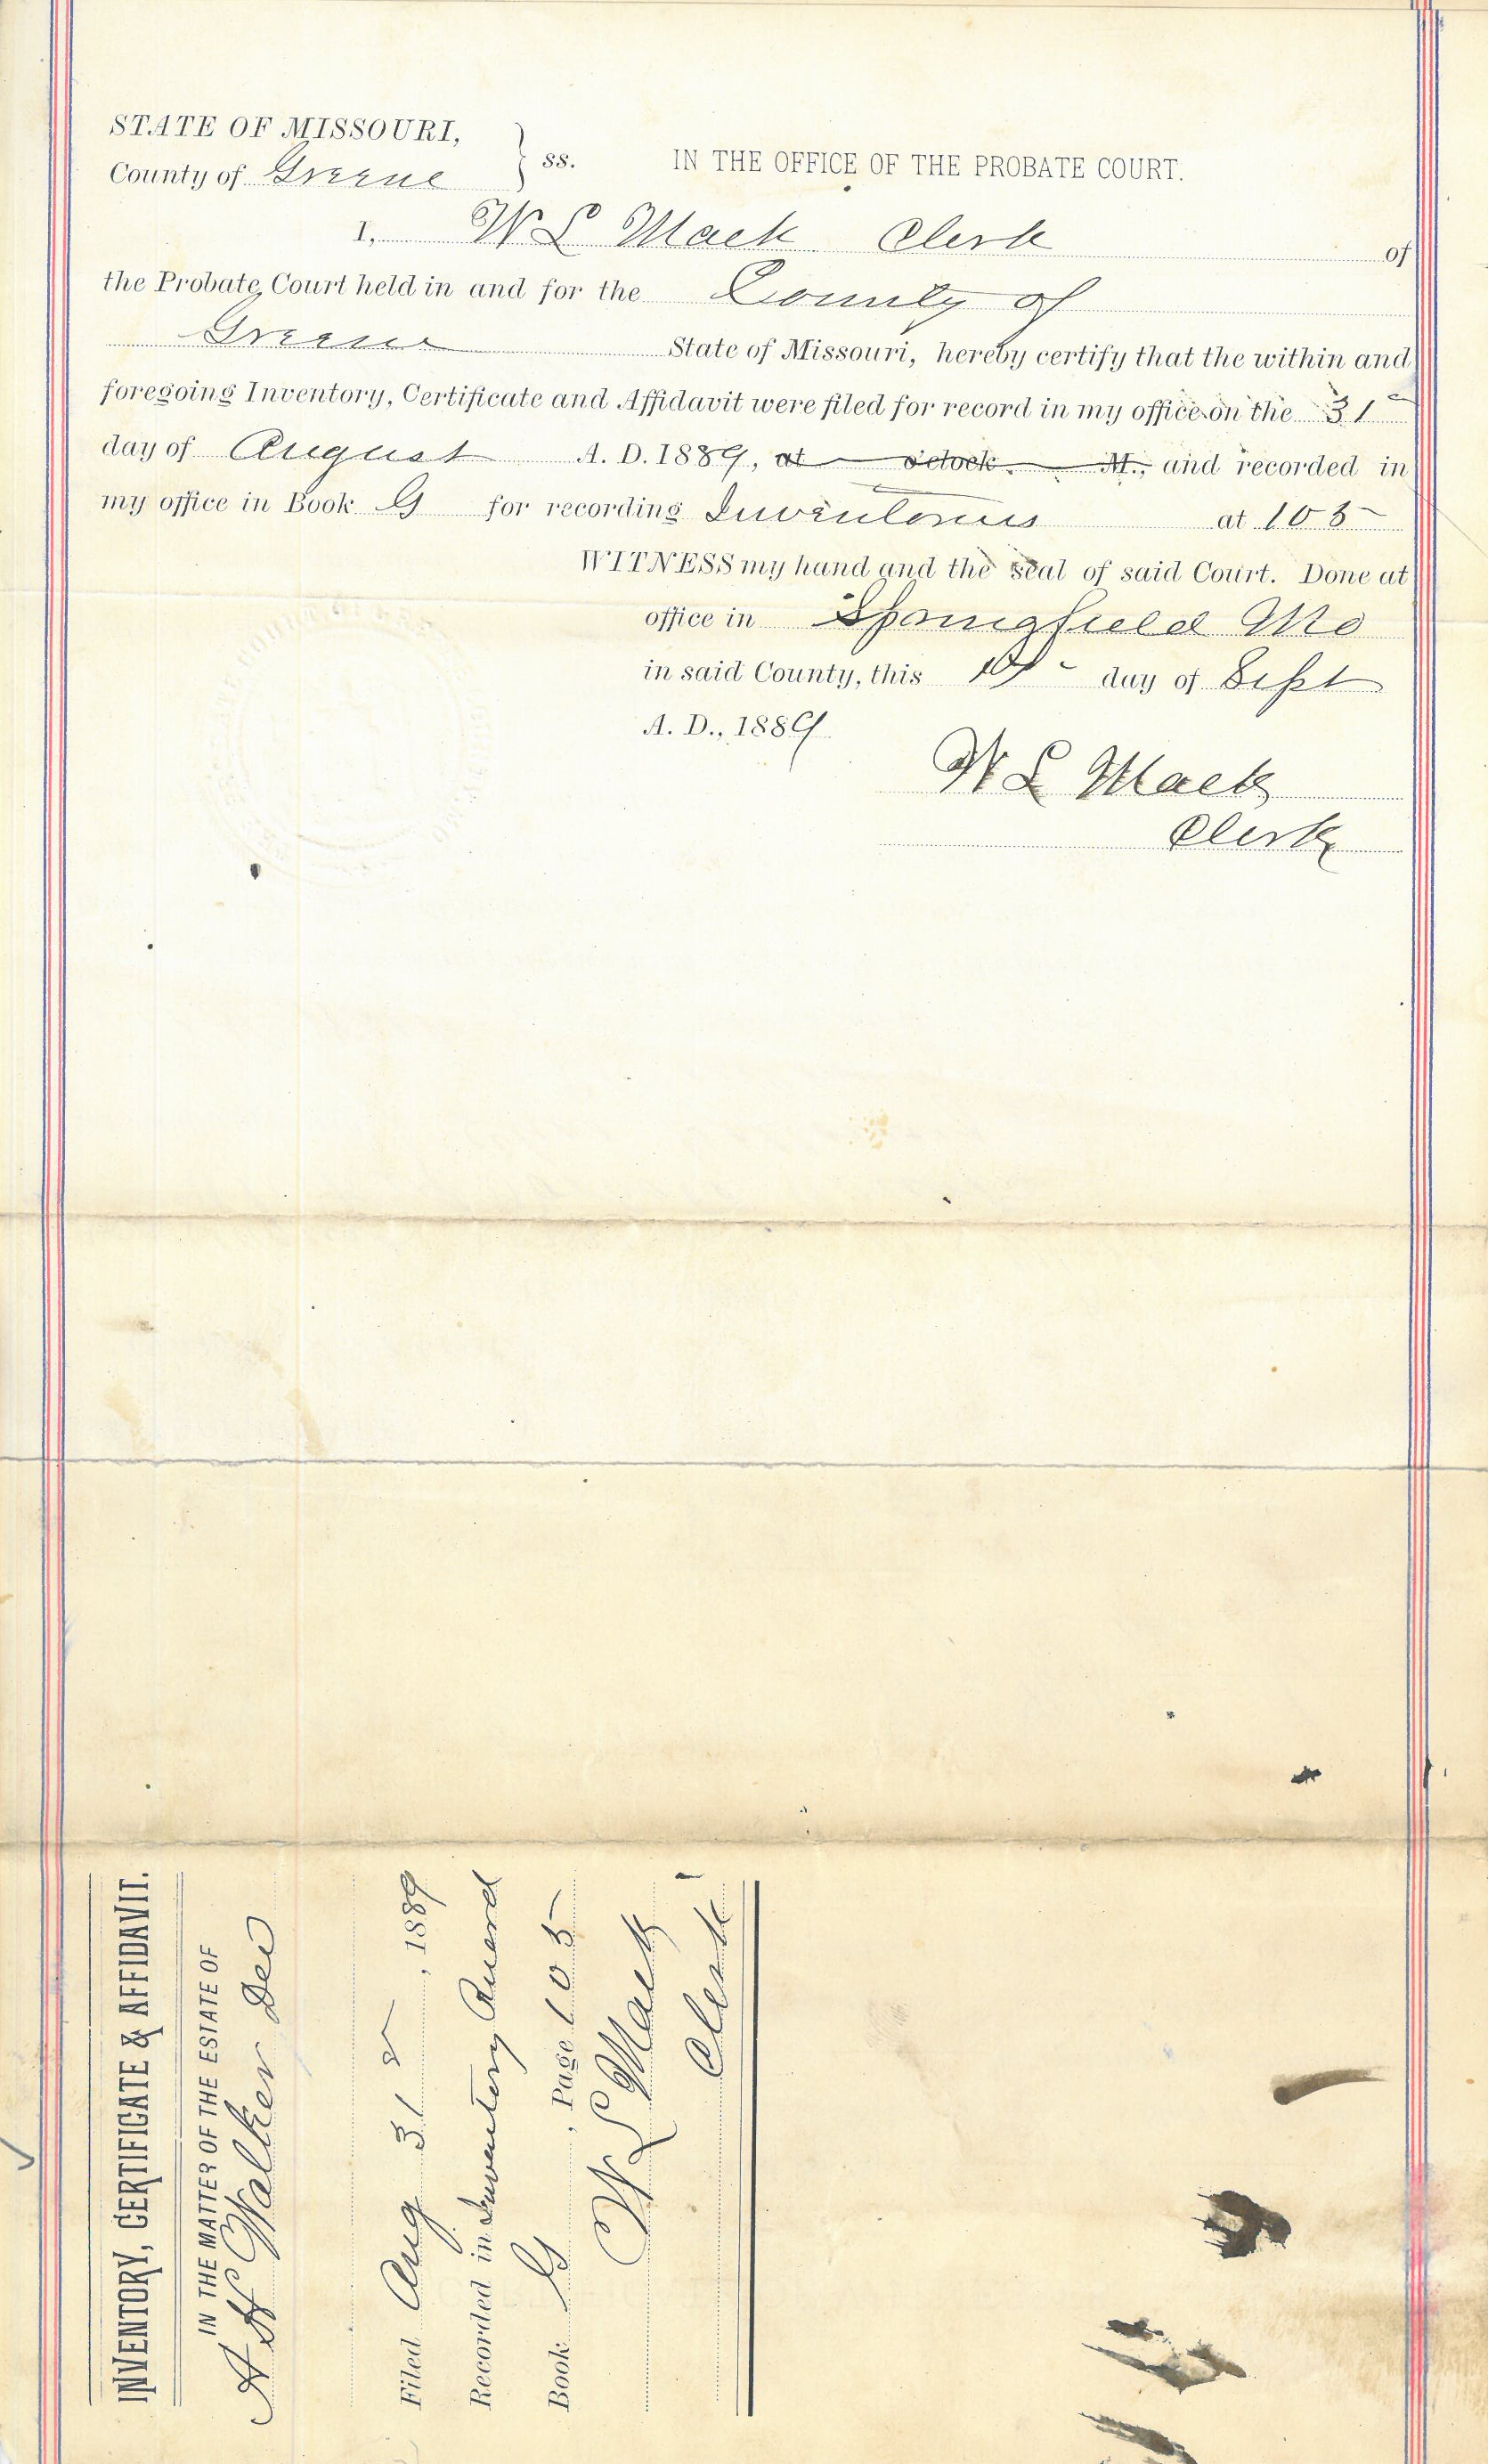 STATE OF MISSOURI,
County of Greene } ss. IN THE OFFICE OF THE PROBATE COURT.
I, W L Mack Clerk of
the Probate Court held in and for the County of
Greene State of Missouri, hereby certify that the within and
foregoing Inventory, Certificate and Affidavit were filed for record in my office on the 31
day of August A. D. 1889, at o'clock M., and recorded in
my office in Book G for recording Inventories at 105
WITNESS my hand and the seal of said Court. Done at
office in Springfield Mo
in said County, this day of Sept
A. D., 1889
W L Mack
Clerk
INVENTORY, CERTIFICATE & AFFIDAVIT.
IN THE MATTER OF THE ESTATE OF
A H Walker Dec
Filed Aug 31, 1889
Recorded in Inventory Record
Book G, Page 105
W L Mack
Clerk